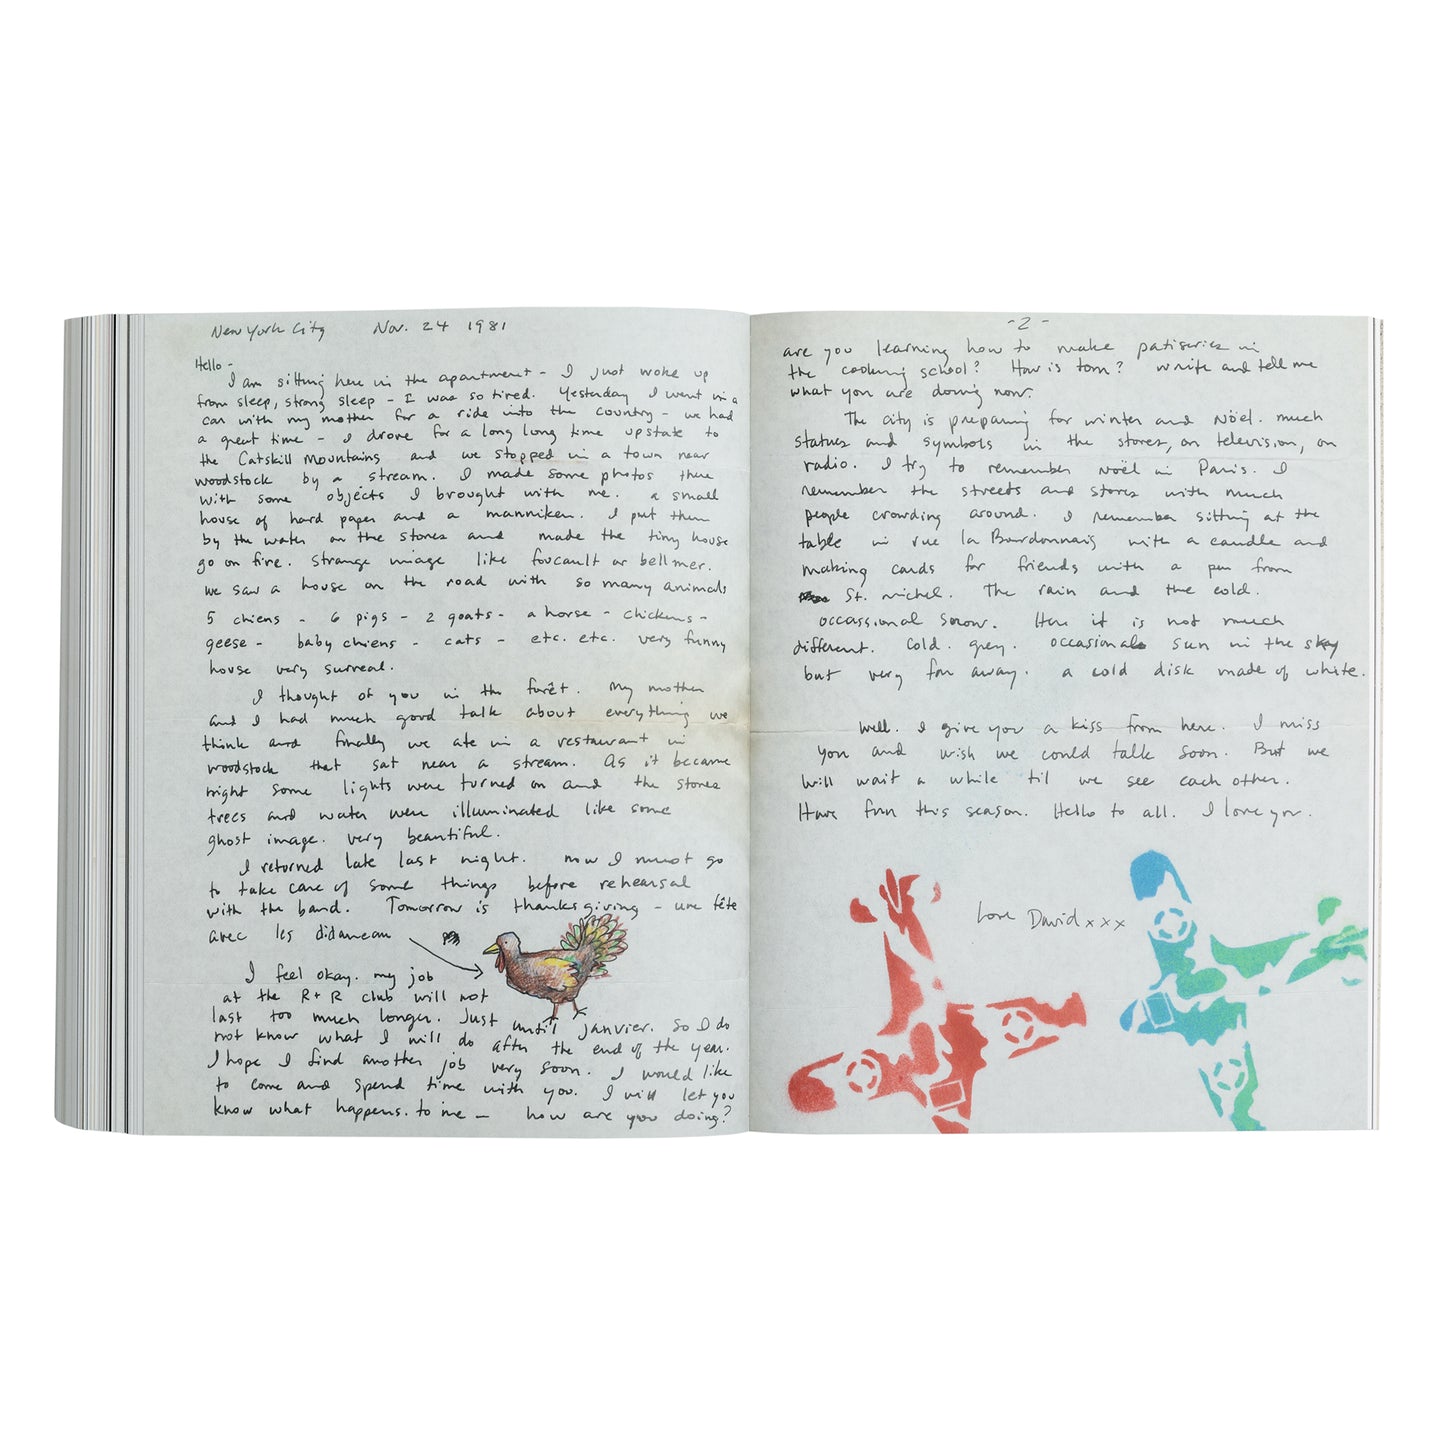 New York City Nov. 24 1981
Hello -
I am sitting here in the apartment - I just woke up
from sleep, strong sleep - I was so tired. Yesterday I went in a
car with my mother for a ride into the country - we had
a great time - I drove for a long long time upstate to
the Catskill Mountains and we stopped in a town near
woodstock by a stream. I made some photos there
with some objects I brought with me. a small
house of hard paper and a manniken. I put them
by the water on the stones and made the tiny house
go on fire. strange image like foucault or bellmer.
we saw a house on the road with so many animals
5 chiens - 6 pigs - 2 goats - a horse - chickens -
geese - baby chiens - cats - etc. etc. very funny
house very surreal.
I thought of you in the forêt. My mother
and I had much good talk about everything we
think and finally we ate in a restaurant in
woodstock that sat near a stream. As it became
night some lights were turned on and the stones
trees and water were illuminated like some
ghost image. very beautiful.
I returned late last night. now I must go
to take care of some things before rehearsal
with the band. Tomorrow is thanksgiving - une fête
avec les
I feel okay. my job
at the R+R club will not
last too much longer. Just until janvier. So I do
not know what I will do after the end of the year.
I hope I find another job very soon. I would like
to come and spend time with you. I will let you
know what happens. to me - how are you doing?
-2-
are you learning how to make patiseries in
the cooking school? How is tom? write and tell me
what you are doing now.
The city is preparing for winter and Nöel. much
statues and symbols in the stores, on television, on
radio. I try to remember Noël in Paris. I
remember the streets and stores with much
people crowding around. I remember sitting at the
table in rue la Bourdonnais with a candle and
making cards for friends with a pen from
St. Michel. The rain and the cold.
occassional snow. Here it is not much
different. Cold. grey. occasional sun in the sky
but very far away. a cold disk made of white.
Well. I give you a kiss from here. I miss
you and wish we could talk soon. But we
will wait a while til we see each other.
Have fun this season. Hello to all. I love you.
Love David xxx